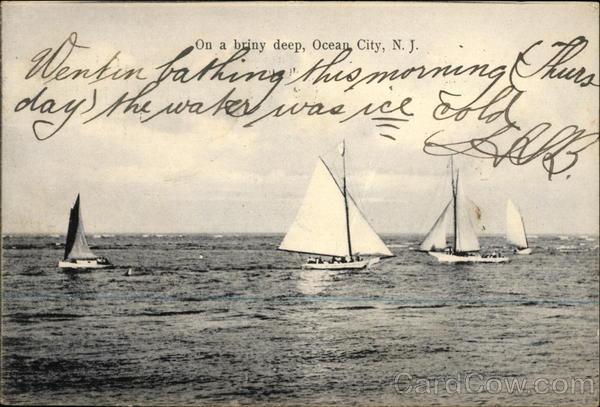 On a briny deep, Ocean City, N. J.
Went in bathing this morning (Thurs
day) the water was ice cold
CardCow.com